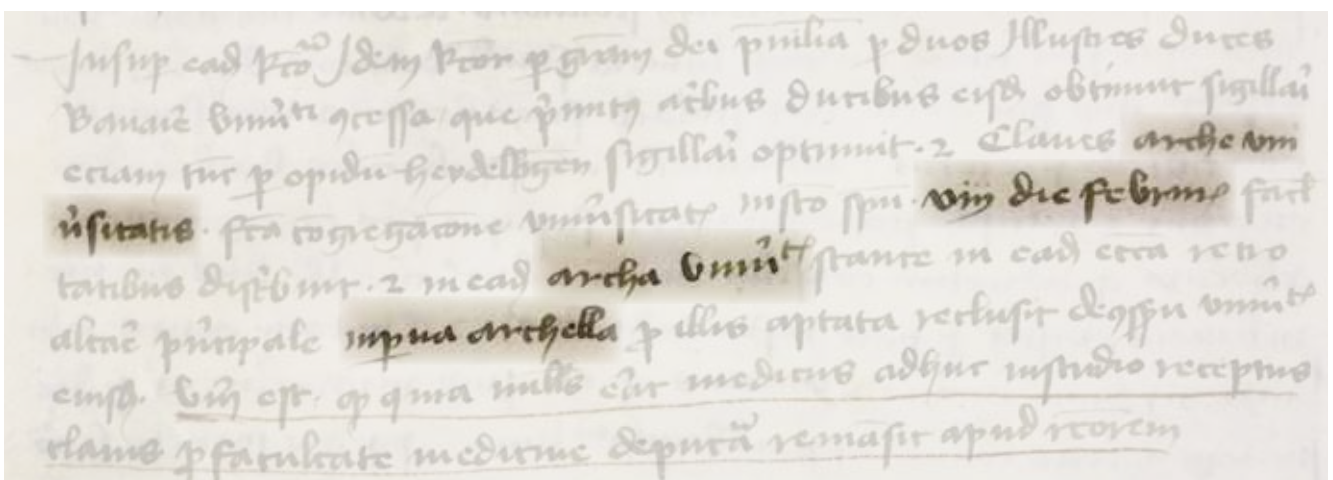 Insup ead Idem Rcor p grām dei p duos Illustres duces
Bauarie vniũti ↄcessa que ducibus eisd obtinuit sigillari
eciam tūc p opidū heydelbgen sigillari optinuit . Claues arche vni
ũsitatis . fcā cōgregacōne vniũsitat in sco spū . viij die februar facl
tatibus distbuit . in ead archa vniũti stante in ead eccā retro
altare pncipale in pua archella p illis aptata reclusit vniũti
eiusd . est . quia erat medicus adhuc in studio receptus
clauis p facultate medicine deputā remāsit apud rcorem